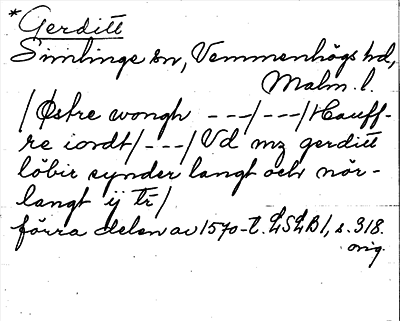 *Gerditt
Simlinge sn, Vemmenhögs hd,
Malm. l.
/Østre wongh ---/---/Hauff-
re iordt/---/Vd mz gerditt
löbir synder langt och nör-
langt ij tr/
förra delen av 1570-t. LSLB1, s. 318.
orig.